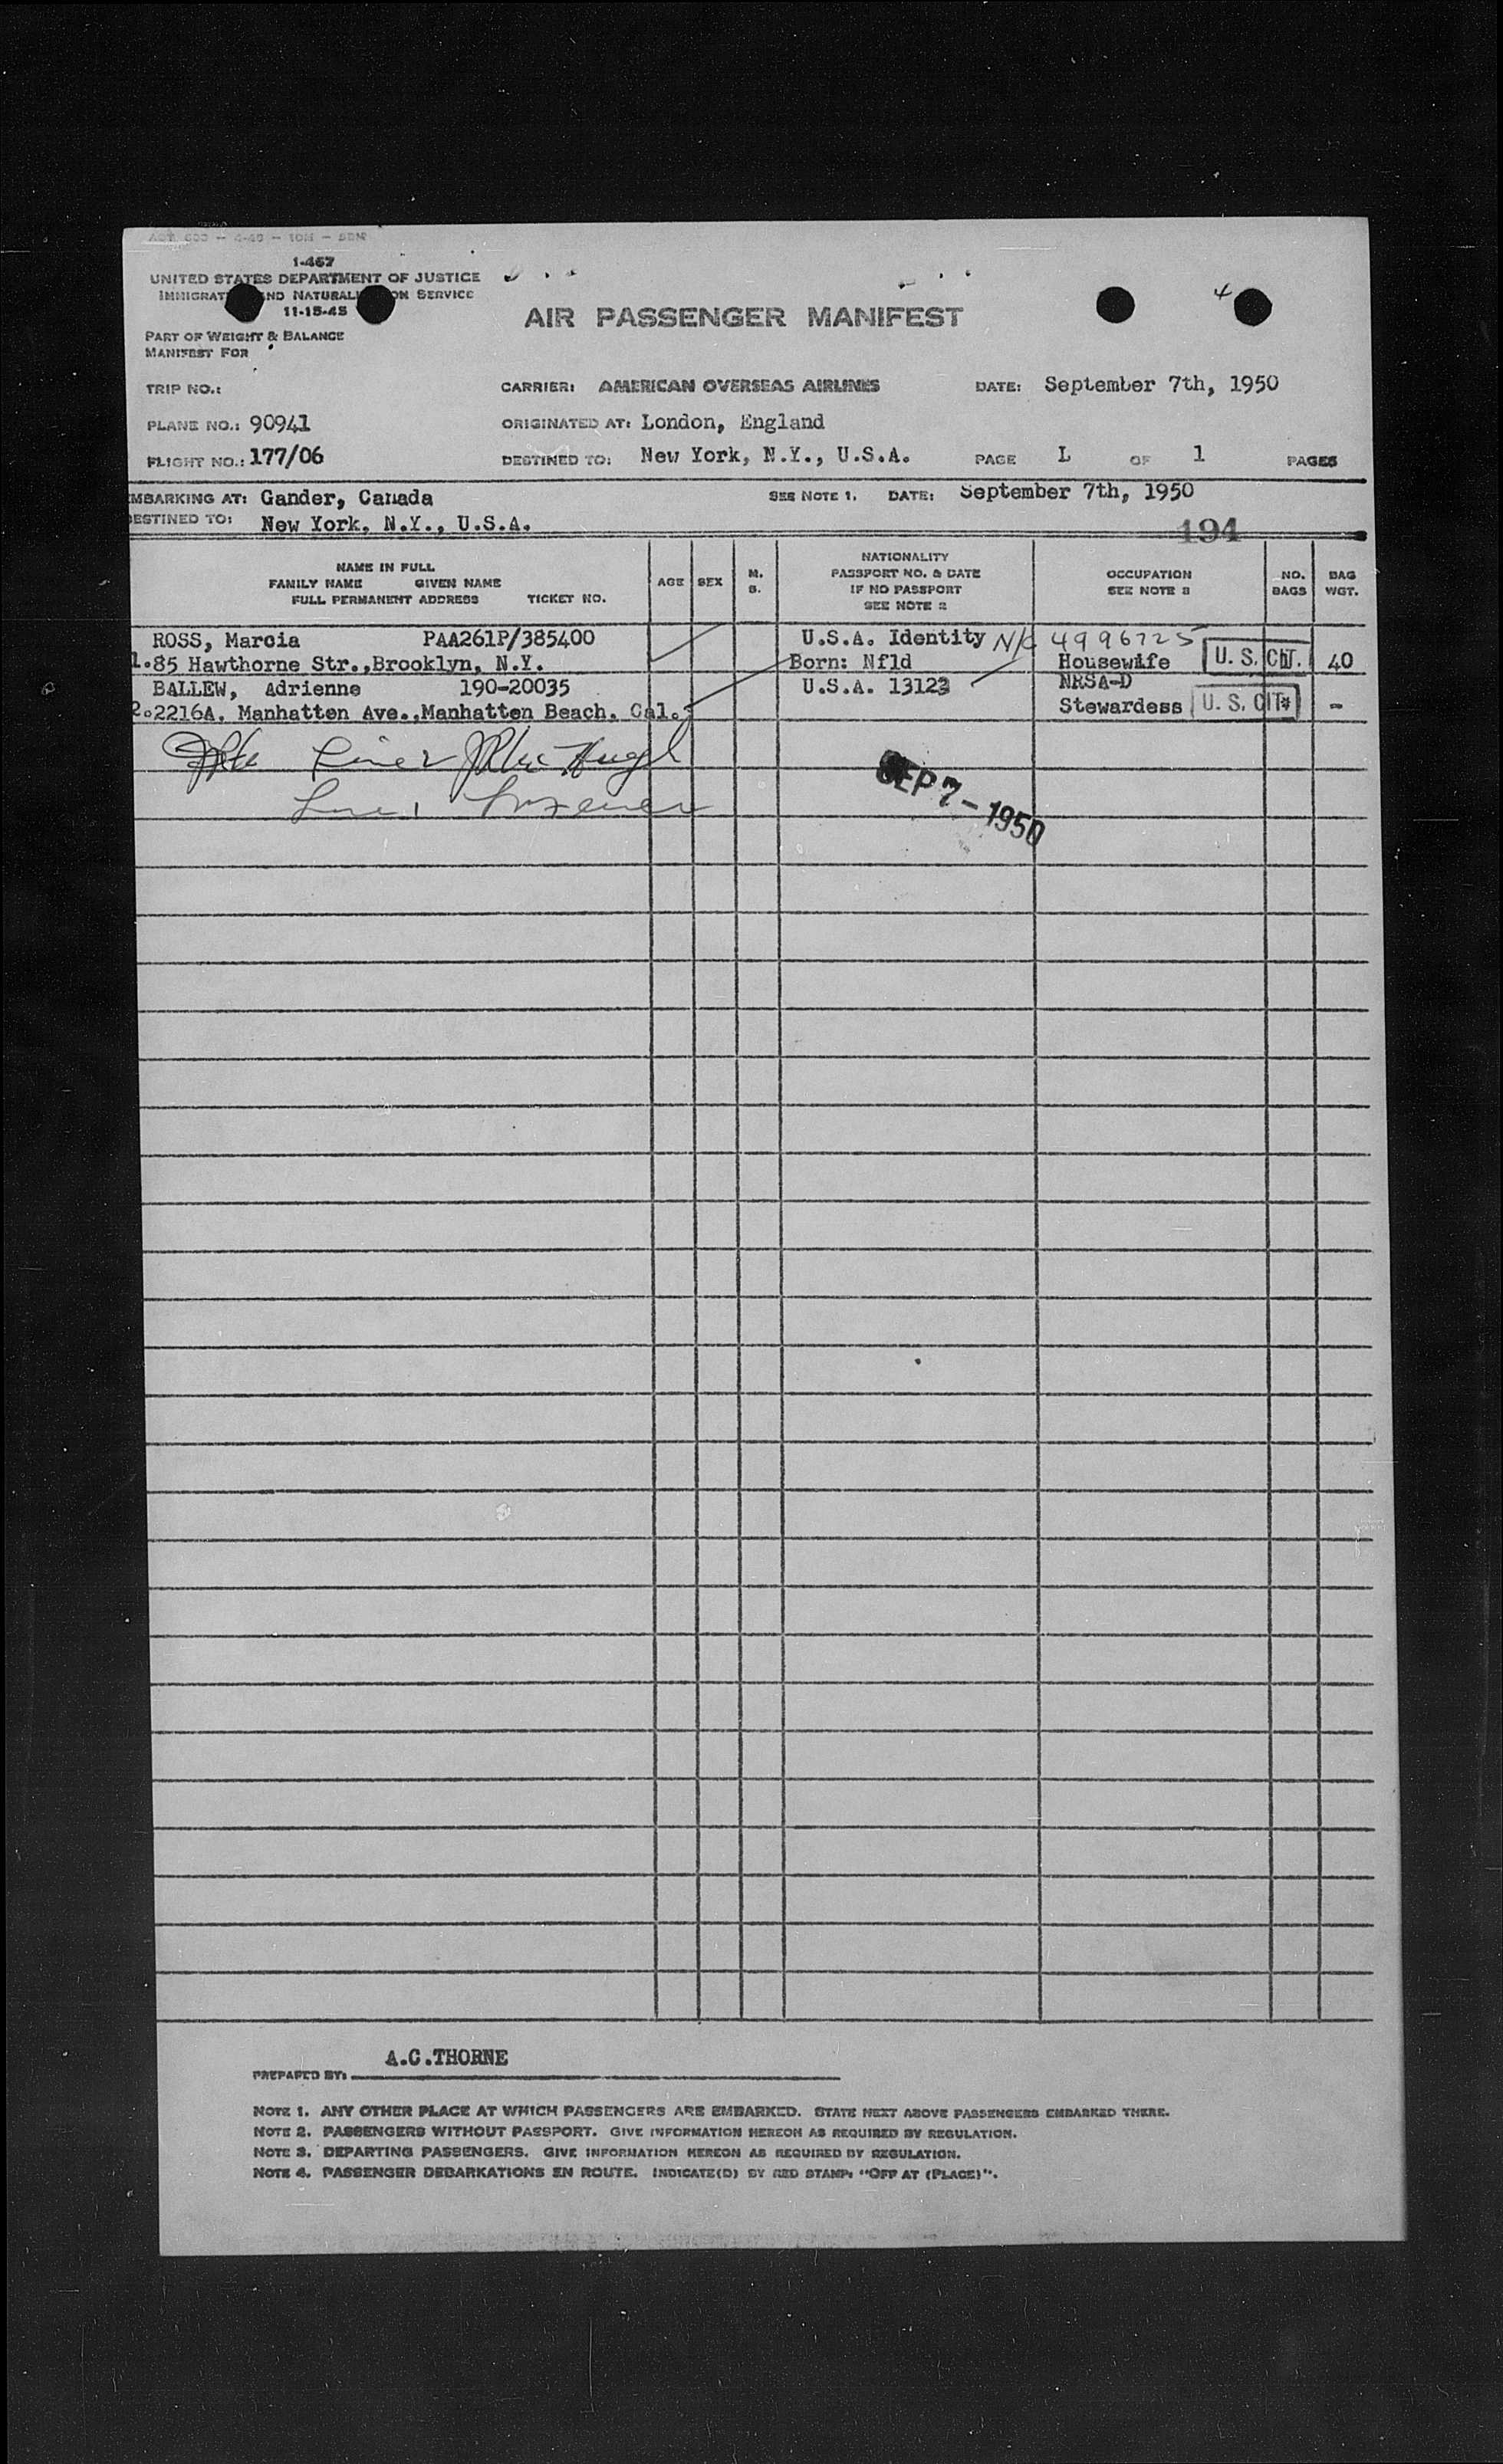 1-467
UNITED STATES DEPARTMENT OF JUSTICE
IMMIGRAT ND NATURALI ON SERVICE
11-15-45
AIR PASSENGER MANIFEST
4
PART OF WEIGHT & BALANCE
MANIFEST FOR
TRIP NO.: CARRIER: AMERICAN OVERSEAS AIRLINES DATE: September 7th, 1950
PLANE NO.: 90941 ORIGINATED AT: London, England
FLIGHT NO.: 177/06 DESTINED TO: New York, N.Y., U.S.A. PAGE L OF 1 PAGES
MBARKING AT: Gander, Canada SEE NOTE 1. DATE: September 7th, 1950
ESTINED TO: New York, N.Y., U.S.A. 194
NAME IN FULL
FAMILY NAME GIVEN NAME
FULL PERMANENT ADDRESS TICKET NO.
AGE SEX M. S.
NATIONALITY
PASSPORT NO. & DATE
IF NO PASSPORT
SEE NOTE 2
OCCUPATION
SEE NOTE 3
NO. BAGS
BAG WGT.
ROSS, Marcia PAA261P/385400 U.S.A. Identity N/C 4996725
1.85 Hawthorne Str.,Brooklyn, N.Y. Born: Nfld Housewife U.S. CIT. 40
BALLEW, Adrienne 190-20035 U.S.A. 13123 NRSA-D
2.2216A, Manhatten Ave.,Manhatten Beach, Cal. Stewardess U.S. CIT* -
SEP 7-1950
A.C.THORNE
PREPARED BY:
NOTE 1. ANY OTHER PLACE AT WHICH PASSENGERS ARE EMBARKED. STATE NEXT ABOVE PASSENGERS EMBARKED THERE.
NOTE 2. PASSENGERS WITHOUT PASSPORT. GIVE INFORMATION HEREON AS REQUIRED BY REGULATION.
NOTE 3. DEPARTING PASSENGERS. GIVE INFORMATION HEREON AS REQUIRED BY REGULATION.
NOTE 4. PASSENGER DEBARKATIONS EN ROUTE. INDICATE(D) BY RED STAMP: "OFF AT (PLACE)".